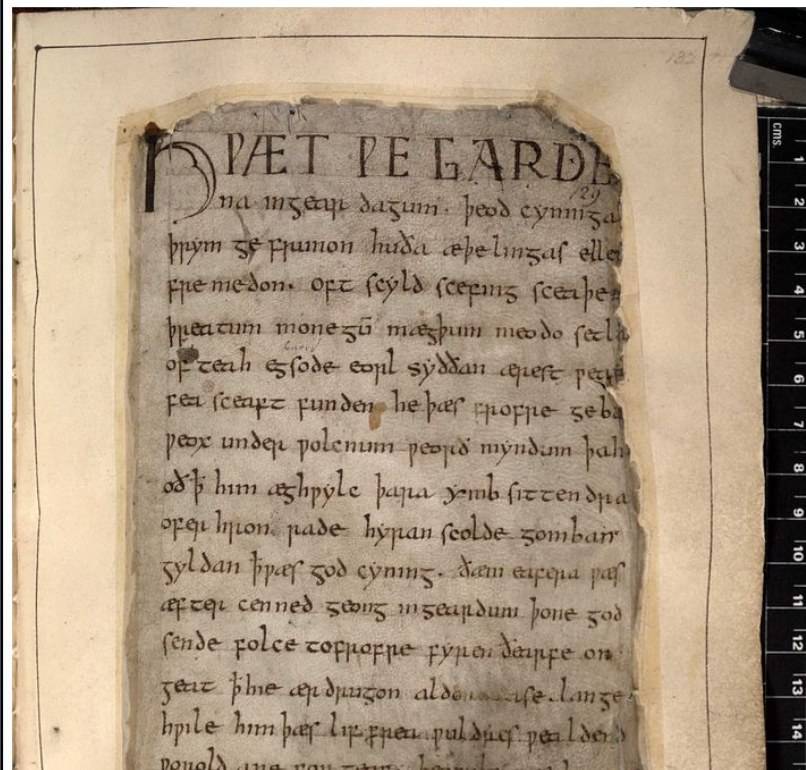 132
HǷÆT ǷE GARDE
129
na ingear dagum. þeod cyninga
þrym ge frunon huða æþelingas elle
fre medon. oft scyld scefing sceaþe
þreatum monegū mægþum meodo setla
of teah egsode eorl syððan ærest ƿear
fea sceaft funden he þæs frofre geba
ƿeox under ƿolcnum ƿeorð myndum þah
oð ꝥ him æghƿylc þara ymb sittendra
ofer hron rade hyran scolde gomban
gyldan ꝥ ƿæs god cyning. ðæm eafera ƿæs
æfter cenned geong ingeardum þone god
sende folce tofrofre fyren ðearfe on
geat ꝥ hie ær drugon aldor ase. lange
hƿile him þæs lif frea ƿuldres ƿealdend
ƿorold are
cms.
1
2
3
4
5
6
7
8
9
10
11
12
13
14